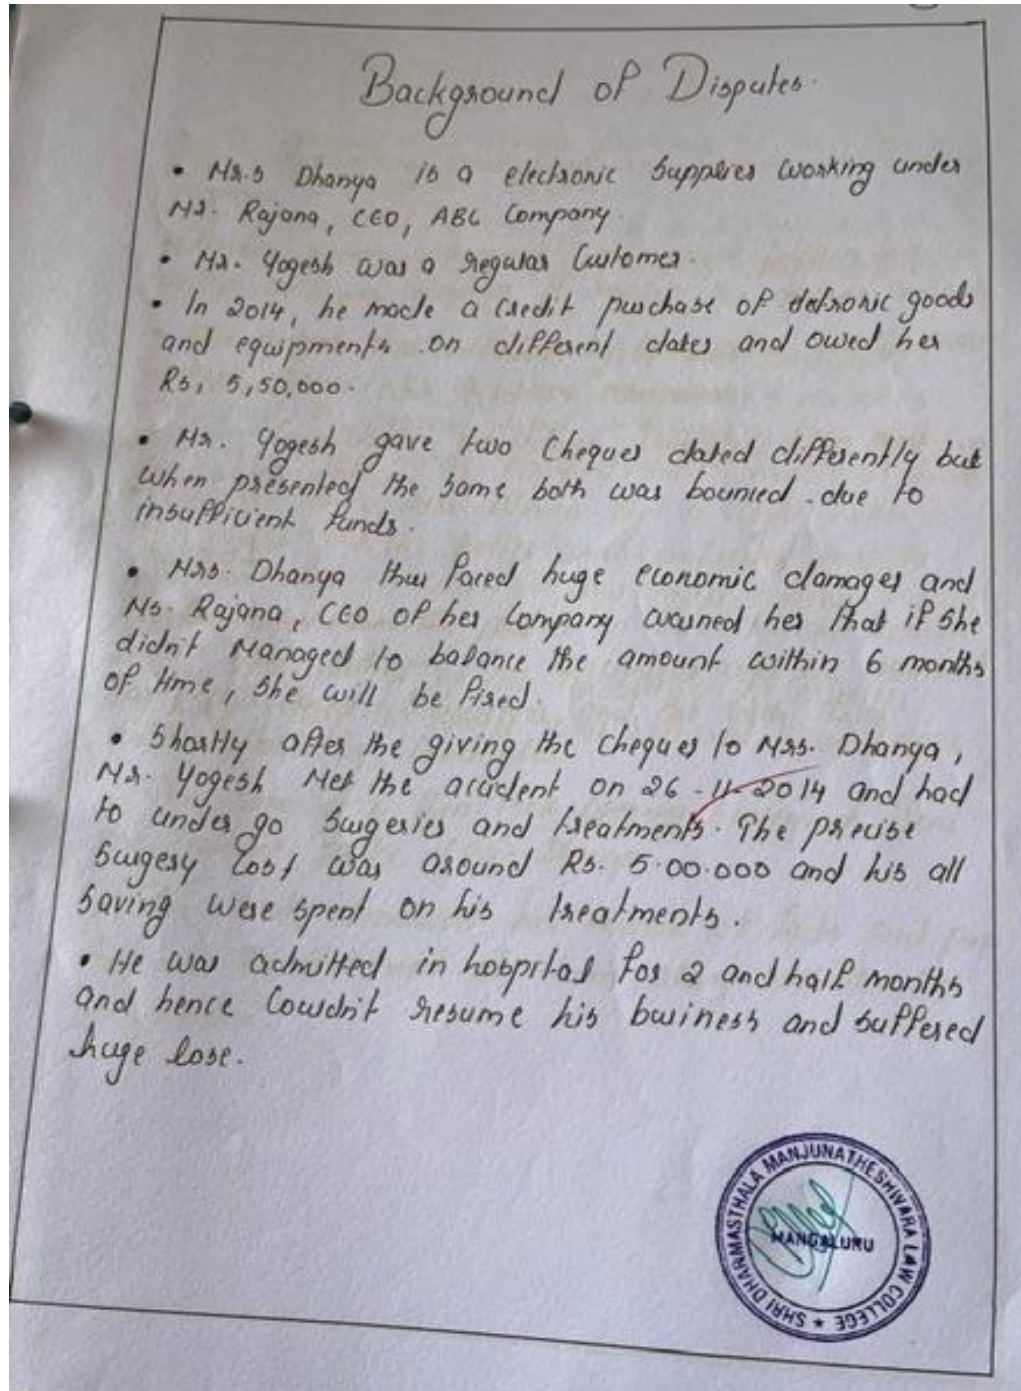 Background of Disputes.
• Mr.s Dhanya is a electronic Supplier working under
Mr. Rajana, CEO, ABC Company.
• Mr. Yogesh was a regular Customer.
• In 2014, he made a credit purchase of eletronic goods
and equipments on different dates and owed her
Rs, 5,50,000.
• Mr. Yogesh gave two Cheques dated differently but
when presented the same both was bounced due to
insufficient funds.
• Mrs. Dhanya thus faced huge economic damages and
Ms. Rajana, CEO of her Company warned her that if She
didn't Managed to balance the amount within 6 months
of time, She will be fired.
• Shortly after the giving the cheques to Mrs. Dhanya,
Mr. Yogesh Met the accident on 26-11-2014 and had
to under go Surgeries and treatments. The precise
Surgery Cost was around Rs. 5.00.000 and his all
Saving were spent on his treatments.
• He was admitted in hospital for 2 and half months
and hence Couldn't resume his business and suffered
huge lose.
SHRI DHARMASTHALA MANJUNATHESHWARA LAW COLLEGE ★
MANGALURU